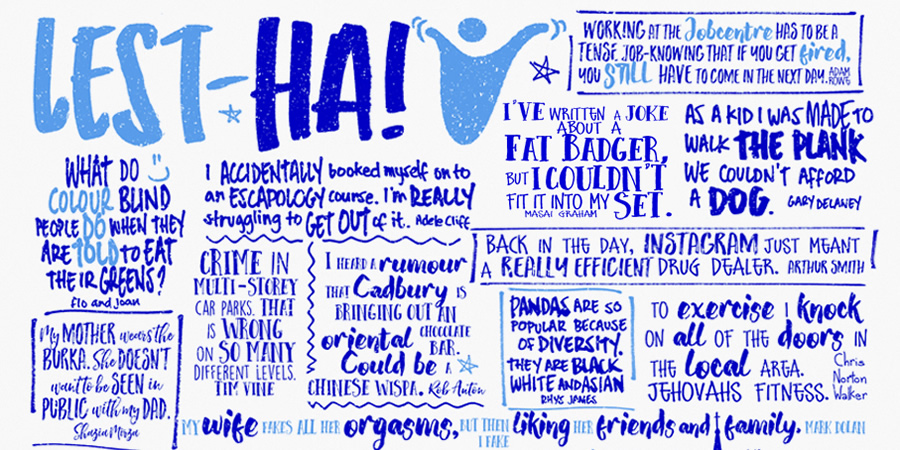 LEST-HA!
WORKING AT THE Jobcentre HAS TO BE A
TENSE JOB-KNOWING THAT IF YOU GET fired,
YOU STILL HAVE TO COME IN THE NEXT DAY. ADAM
ROWE
I'VE WRITTEN A JOKE
ABOUT A
FAT BADGER,
BUT I COULDN'T
FIT IT INTO MY SET.
MASAI GRAHAM
AS A KID I WAS MADE TO
WALK THE PLANK
WE COULDN'T AFFORD
A DOG. GARY DELANEY
WHAT DO
COLOUR BLIND
PEOPLE DO WHEN THEY
ARE TOLD TO EAT
THEIR GREENS?
flo and Joan
I ACCIDENTALLY booked myself on to
an ESCAPOLOGY course. I'm REALLY
struggling to GET OUT of it. Adele Cliff
BACK IN THE DAY, INSTAGRAM JUST MEANT
A REALLY EFFICIENT DRUG DEALER. ARTHUR SMITH
CRIME IN
MULTI-STOREY
CAR PARKS. THAT
IS WRONG
ON SO MANY
DIFFERENT LEVELS.
TIM VINE
I HEARD A rumour
THAT Cadbury IS
BRINGING OUT AN
oriental CHOCOLATE
BAR.
Could be A
CHINESE WISPA. Rob Auton
PANDAS ARE SO
POPULAR BECAUSE
OF DIVERSITY.
THEY ARE BLACK
WHITE AND ASIAN
RHYS JAMES
TO exercise I knock
ON all OF THE doors IN
THE local AREA.
JEHOVAHS FITNESS.
Chris
Norton
Walker
My MOTHER wears the
BURKA. She DOESN'T
want to be SEEN in
PUBLIC with my DAD.
Shazia Mirza
MY wife FAKES ALL HER orgasms, BUT THEN I FAKE liking HER friends and family. MARK DOLAN